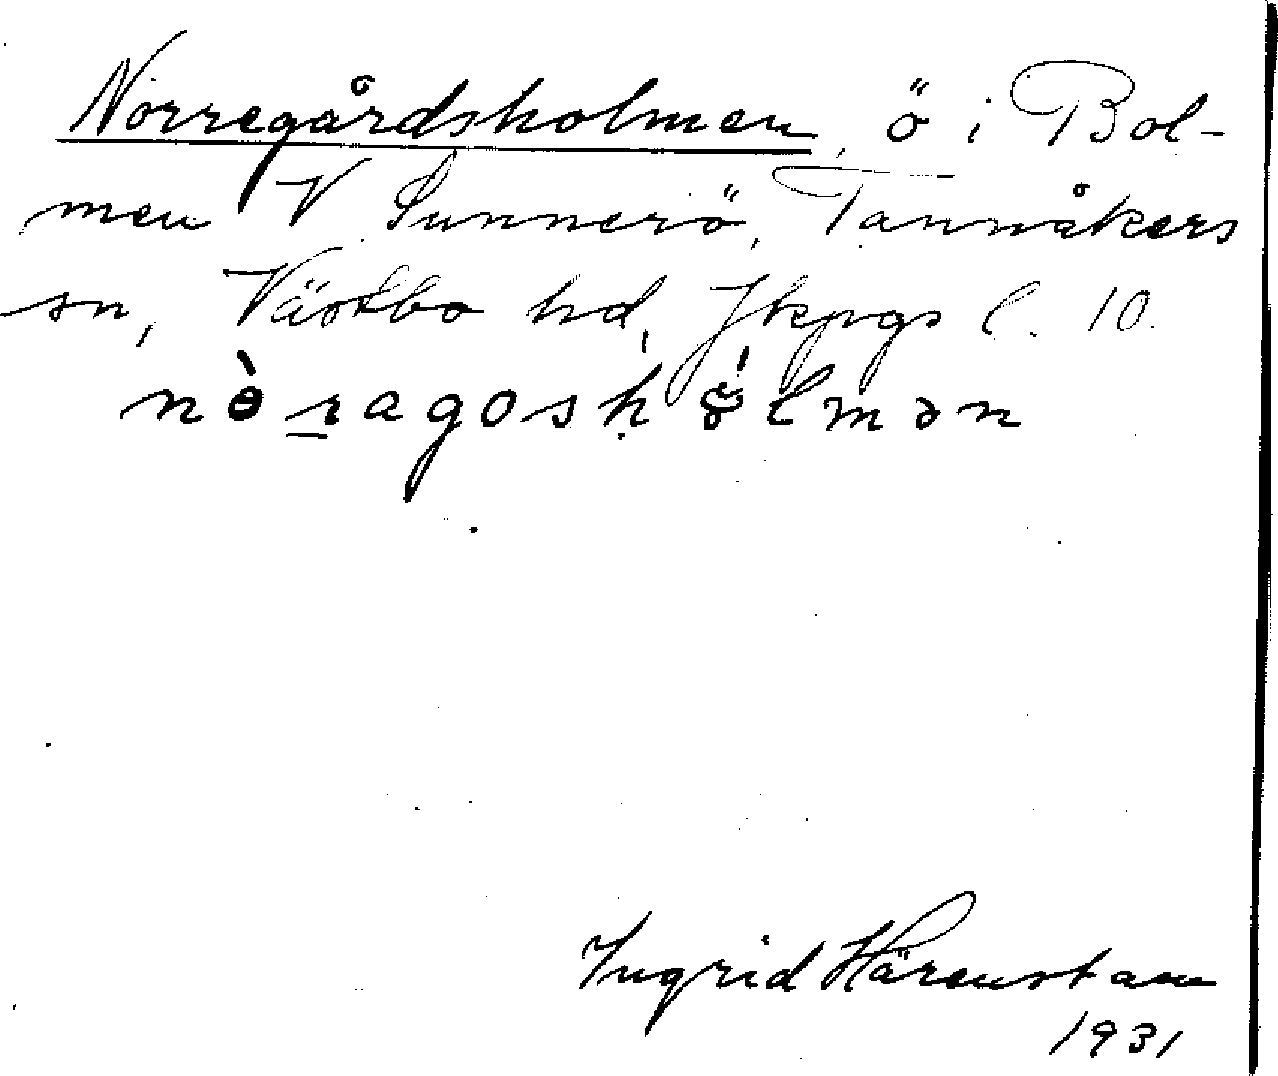 Norregårdsholmen, ö i Bol-
men V Sunnerö, Tannåkers
sn, Västbo hd, Jkpgs l. 10.
nɵ̀ragosḥɞ́lmən
Ingrid Härenstam
1931